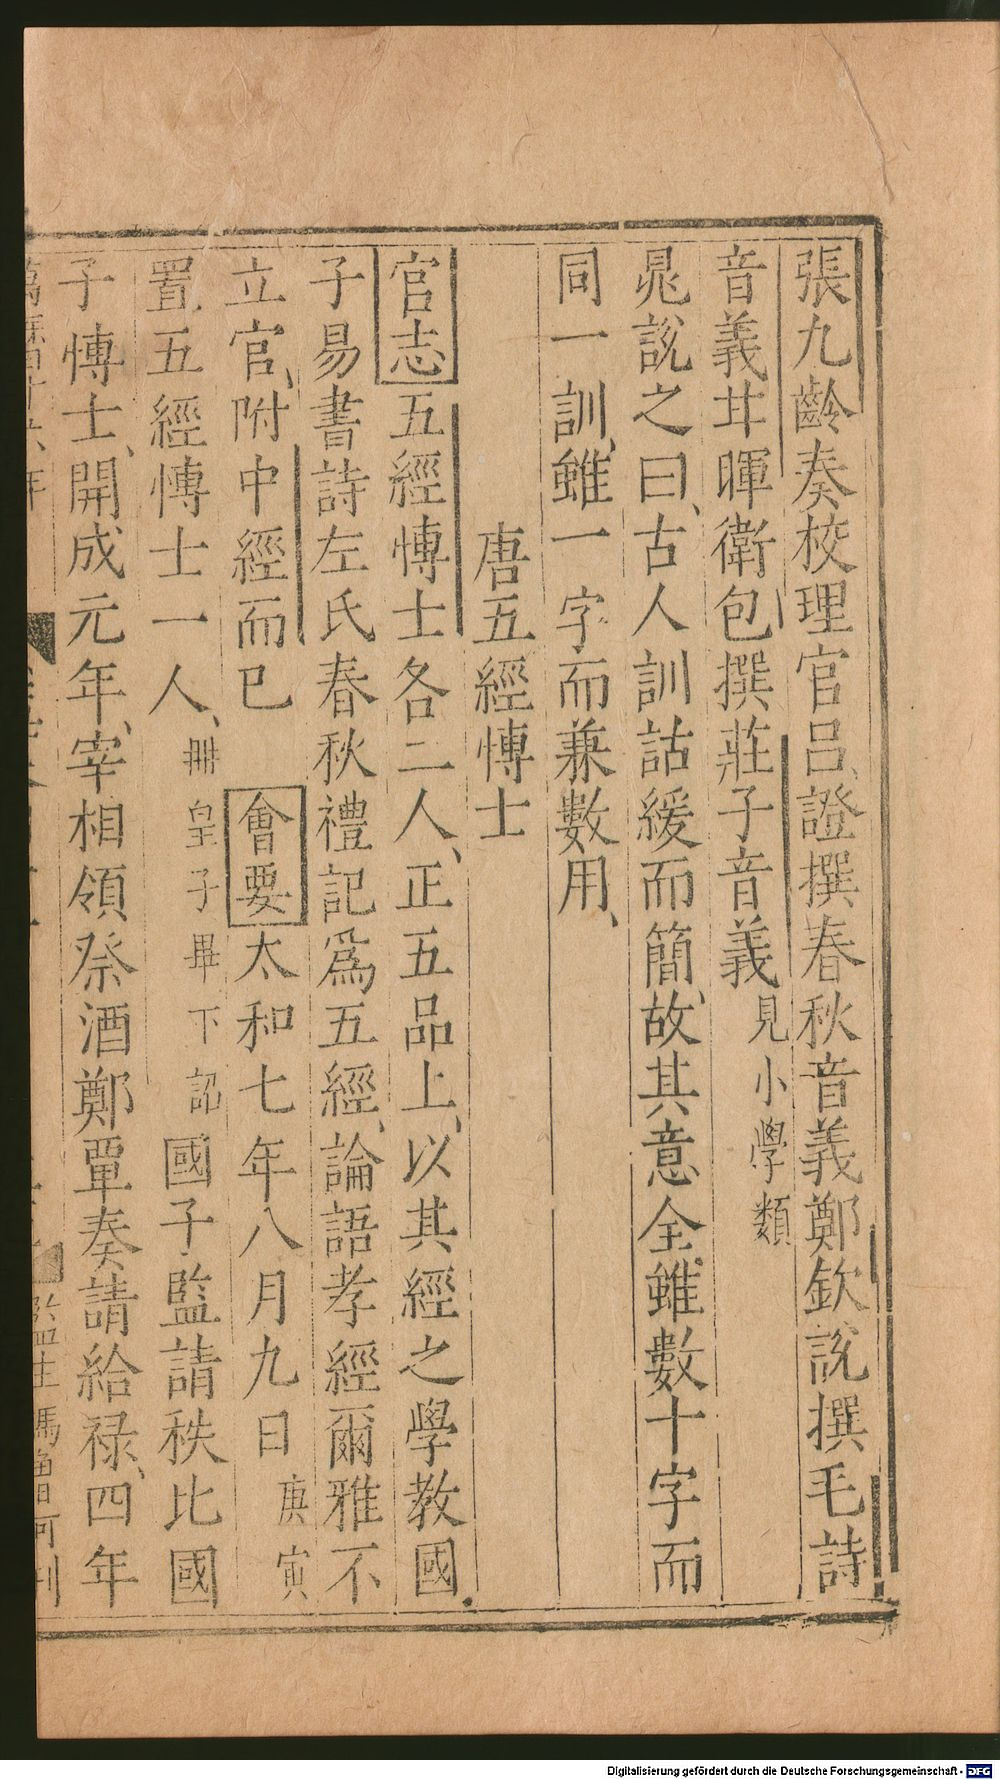 張九齡奏校理官吕證撰春秋音義鄭欽說撰毛詩
音義甘暉衛包撰莊子音義見小學類
晁說之曰古人訓詁緩而簡故其意全雖數十字而
同一訓雖一字而兼數用
唐五經博士
官志五經博士各二人正五品上以其經之學教國
子易書詩左氏春秋禮記為五經論語孝經爾雅不
立官附中經而已 會要太和七年八月九日庚寅
置五經博士一人冊皇子畢下詔國子監請秩比國
子博士開成元年宰相領祭酒鄭覃奏請給禄四年
監生馮
Digitalisierung gefördert durch die Deutsche Forschungsgemeinschaft - DFG